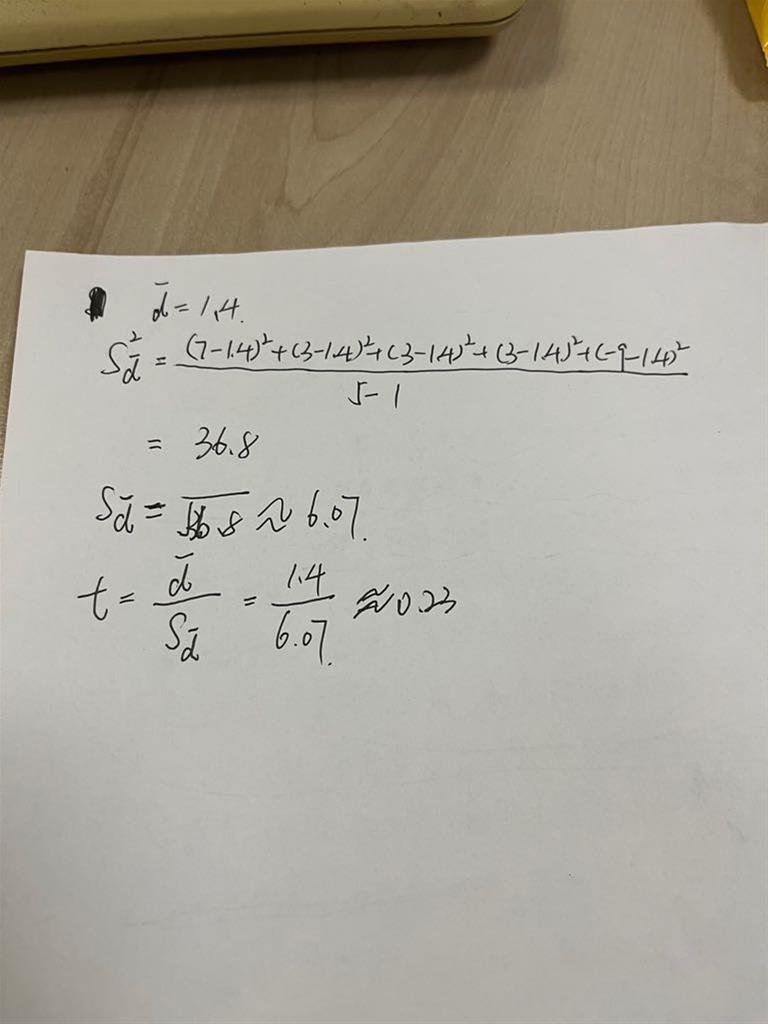 d̄ = 1.4.
S²d̄ = ((7-1.4)²+(3-1.4)²+(3-1.4)²+(3-1.4)²+(-9-1.4)²)/(5-1)
= 36.8
Sd̄ = √36.8 ≈ 6.07.
t = d̄/Sd̄ = 1.4/6.07. ≈ 0.23